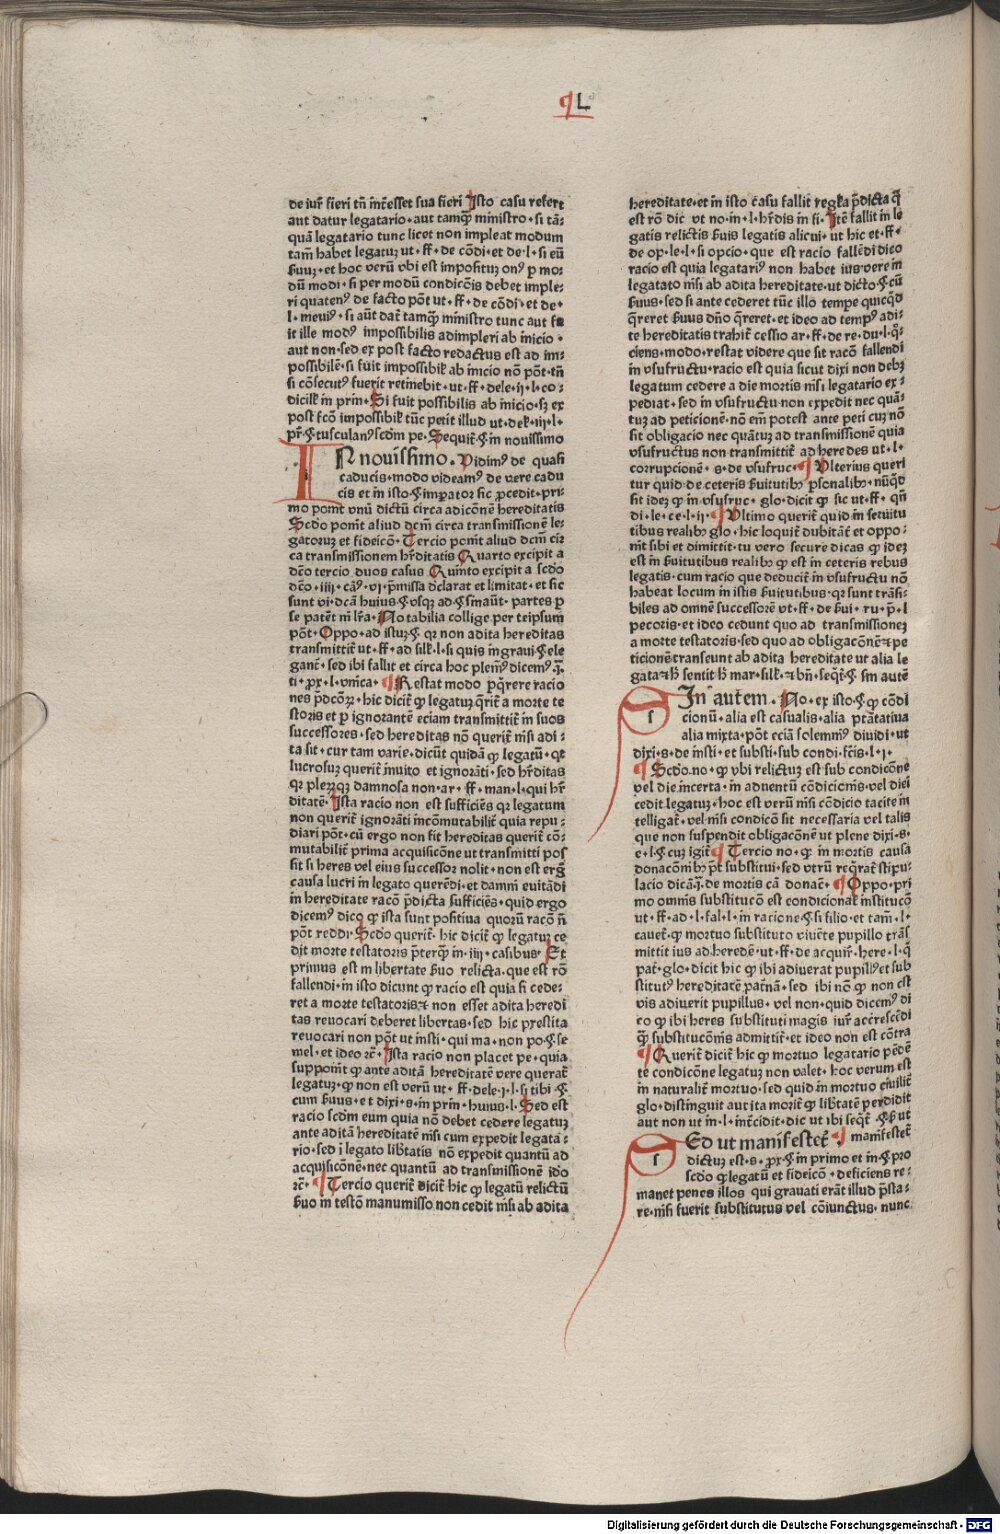 ¶ L
de iur̃ fieri tñ int̃esset sua fieri Isto casu refert
aut datur legatario · aut tamq̃ ministro · si tā⸗
quā legatario tunc licet non impleat modum
tam̃ habet legatuꝫ ut · ff · de cōdi · et de · l · si eū
et hoc verū vbi est impositus
dū modi · si per modū condicōis debet imple⸗
ri quatenꝰ de facto pōt ut · ff · de cōdi · et de ·
l · meviꝰ · si aūt dat̃ tamq̃ ministro tunc aut
it ille modꝰ impossibilis adimpleri ab inicio ·
aut non · sed ex post facto redactus est ad im⸗
possibilē · si fuit impossibil̃ ab inicio nō pōt · tñ
si cōsecutꝰ fuerit retinebit · ut · ff · de le · ij · l · co⸗
dicill̃ in prin · Si fuit possibilis ab inicio · sꝫ ex
post fc̄o impossibil̃ tūc petit illud ut · de · iij · l ·
pr̃ · ꝯ tusculanꝰ scd̄m pe · Sequit̃ · ꝯ in novissimo
IN novissimo · Vidimꝰ de quasi
caducis · modo videamꝰ de vere cadu
cis et in isto · ꝯ impator sic ꝓcedit · pri⸗
mo ponit vnū dictū circa adicōnē hereditatis
Scd̄o ponit aliud dcm̄ circa transmissionē le⸗
gatoruꝫ et fideicō · Tercio ponit aliud dcm̄ cir
ca transmissionem hr̄ditatis Quarto excipit a
dc̄o tercio duos casus Quinto excipit a scd̄o
dc̄o · iiij · caꝰ · vj · p̄missa dc̄larat et limitat · et sic
sunt vi · dc̄a huius · ꝯ vsqꝫ ad · ꝯ sināūt · partes ꝑ
se patēt in lr̃a · Notabilia collige per teipsum
pōt · Oppo · ad istuꝫ · ꝯ qꝛ non adita hereditas
transmittit̃ ut · ff · ad sill̃ · l · si quis in gravi · ꝯ ele
ganc̃ · sed ibi fallit et circa hoc plenꝰ dicemꝰ
ti · ꝓx · l · vnica · ¶ Restat modo p̄q̃rere racio
nes p̄dcōꝝ · hic dicit̃ ꝙ legatuꝫ q̃rit̃ a morte te
storis et ꝑ ignorantē eciam transmittit̃ in suos
successores · sed hereditas nō querit̃ nisi adi⸗
ta sit · cur tam varie · dicūt quidā ꝙ legatū · qꝛ
lucrosuꝫ querit̃ invito et ignorāti · sed hr̃ditas
qꝛ pleꝝqꝫ damnosa non · ar · ff · man · l · qui hr̃
ditatē · Ista racio non est sufficiēs qꝛ legatum
non querit̃ ignorāti incōmutabilit̃ quia repu⸗
diari pōt · cū ergo non sit hereditas querit̃ cō⸗
mutabilit̃ prima acquisicōne ut transmitti pos
sit si heres vel eius successor nolit · non est ergo
causa lucri in legato querēdi · et damni evitādi
in hereditate racō p̄dicta sufficiēs · quid ergo
dicemꝰ dico ꝙ ista sunt positiua quorū racō ñ
pōt reddi · Scd̄o querit̃ · hic dicit̃ ꝙ legatuꝫ ce
dit morte testatoris p̄terq̃ in · iiij · casibus · Et
primus est in libertate relicta · que est rō
fallendi · in isto dicunt ꝙ racio est quia si cede⸗
ret a morte testatoris ⁊ non esset adita heredi
tas revocari deberet libertas · sed hic prestita
revocari non pōt ut insti · qui ma · non po · ꝯ se
mel · et ideo ⁊c̃ · Ista racio non placet pe · quia
supponit ꝙ ante aditā hereditatē vere querat̃
legatuꝫ · ꝙ non est verū ut · ff · de le · j · l · si tibi · ꝯ
et dixi · s · in prin · huius · l · Sed est
racio scd̄m eum quia nō debet cedere legatuꝫ
ante aditā hereditatē nisi cum expedit legata⸗
rio · sed i legato lib̃tatis nō expedit quantū ad
acquisicōnē · nec quantū ad transmissionē ido
⁊c̃ · ¶ Tercio querit̃ dicit̃ hic ꝙ legatū relictū
in testō manumisso non cedit nisi ab adita
hereditate · et in isto casu fallit regla p̄dicta q̃
est rō dic ut no · in · l · hr̃dis in fi · Itē fallit in le
gatis relictis legatis alicui · ut hic et · ff ·
de op · le · l · si opcio · que est racio fallēdi dico
racio est quia legatariꝰ non habet ius vere in
legatato nisi ab adita hereditate · ut dicto · ꝯ cū
sed si ante cederet tūc illo tempe quicqd̄
q̃reret dño q̃reret · et ideo ad tempꝰ adi⸗
te hereditatis trahit̃ cessio ar · ff · de re · du · l · q̃⸗
ciens · modo · restat videre que sit racō fallendi
in vsufructu · racio est quia sicut dixi non debꝫ
legatum cedere a die mortis nisi legatario ex⸗
pediat · sed in vsufructu non expedit nec quā⸗
tuꝫ ad peticionē · nō em̄ potest ante peti cuꝫ nō
sit obligacio nec quātuꝫ ad transmissionē quia
vsufructus non transmittit̃ ad heredes ut · l ·
corrupcionē · s · de vsufruc · ¶ Vlterius queri
tur quid · de ceteris ꝑsonalibꝰ · nūqd̄
sit ideꝫ ꝙ in vsufruc · glo · dicit ꝙ sic ut · ff · qñ
di · le · ce · l · ij · ¶ Vltimo querit̃ quid in servitu
tibus realibꝰ glo · hic loquit̃ dubitāt̃ et oppo⸗
nit̃ sibi et dimittit · tu vero secure dicas ꝙ ideꝫ
est in realibꝰ ꝙ est in ceteris rebus
legatis · cum racio que deducit̃ in vsufructu nō
habeat locum in istis qꝛ sunt trāsi⸗
biles ad omnē successorē ut · ff · de · ru · p̄ · l
pecoris · et ideo cedunt quo ad transmissioneꝫ
a morte testatoris · sed quo ad obligacōnē ⁊ pe
ticionē transeunt ab adita hereditate ut alia le
gata ⁊ sentit mar · sill̃ · ⁊ bñ · seqt̃ · ꝯ sin autē
SIn autem · No · ex isto · ꝯ ꝙ cōdi
cionū · alia est casualis · alia p̄tātatiua
alia mixta · pōt eciā solemnꝰ diuidi · ut
dixi · s · de insti · et substi · sub condi · fc̄is · l · j ·
¶ Scd̄o · no · ꝙ vbi relictuꝫ est sub condicōne
vel die incerta · in adventū cōdicionis · vel diei
cedit legatuꝫ · hoc est verū nisi cōdicio tacite in
telligat̃ · vel nisi condicō sit necessaria vel talis
que non suspendit obligacōnē ut plene dixi · s ·
e · l · ꝯ cuꝫ igit̃ ¶ Tercio no · ꝙ in mortis causa
donacōnibꝰ pt̃ substitui · sed vtrū reqrat̃ stipu⸗
lacio de mortis cā donacō · ¶ Oppo · pri
mo omnis substitucō est condicional̃ institucō
ut · ff · ad · l · fal · l · in racione · ꝯ si filio · et tam̃ · l ·
cavet̃ · ꝙ mortuo substituto viuēte pupillo trās
mittit ius ad heredē · ut · ff · de acquir̃ · here · l · q̃
pat̃ · glo · dicit hic ꝙ ibi adiuerat pupillꝰ et sub
stitutꝰ hereditatē pat̃nā · sed ibi nō ꝙ non est
vis adiverit pupillus · vel non · quid dicemꝰ di
co ꝙ ibi heres substituti magis iur̃ accrescēdi
q̃ substitucōnis admittit̃ · et ideo non est cōtra
¶ Querit̃ dicit̃ hic ꝙ mortuo legatario pēdē
te condicōne legatuꝫ non valet · hoc verum est
in naturalit̃ mortuo · sed quid in mortuo ciuilit̃
glo · distinguit aut ita morit̃ ꝙ lib̃tatē perdidit
aut non ut in · l · int̃cidit · dic ut ibi seqt̃ · ꝯ ut
SEd ut manifestet̃ ¶ manifestet̃
dictuꝫ est · s · ꝓx · ꝯ in primo et in · ꝯ pro
scd̄o ꝙ legatū et fideicō · deficiens re⸗
manet penes illos qui gravati erāt illud p̄sta⸗
re · nisi fuerit substitutus vel cōiunctus · nunc
Digitalisierung gefördert durch die Deutsche Forschungsgemeinschaft · DFG